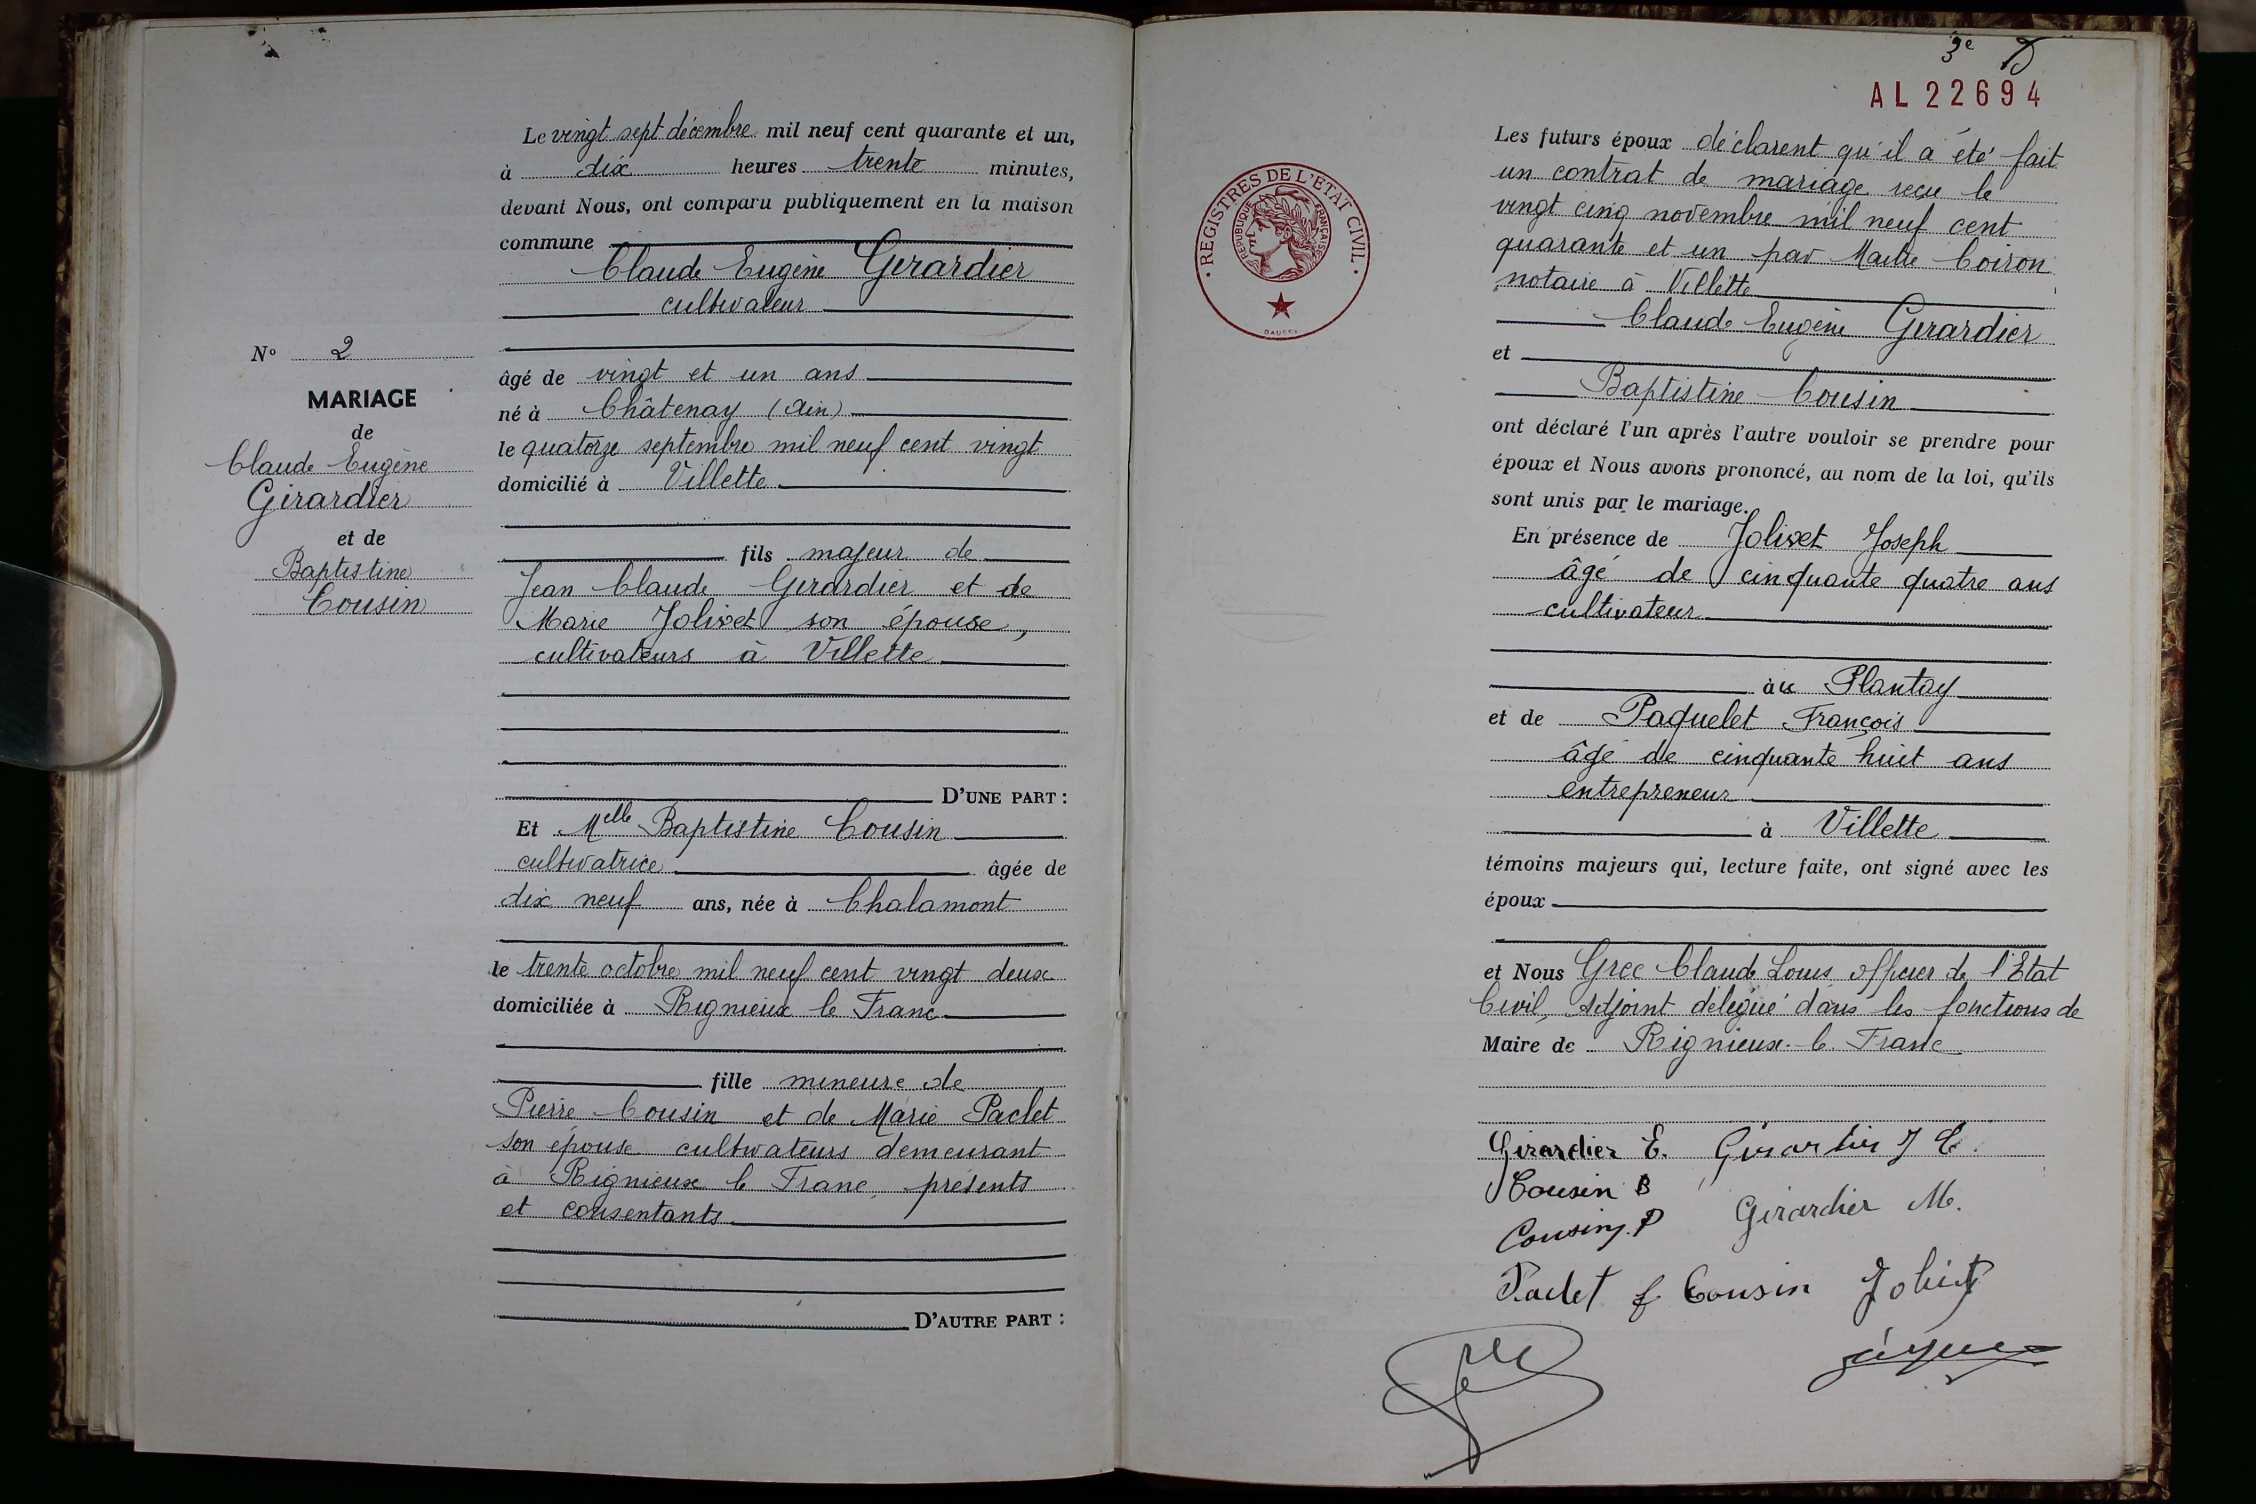 Le vingt sept décembre mil neuf cent quarante et un,
à dix heures trente minutes,
devant Nous, ont comparu publiquement en la maison
commune
Claude Eugène Girardier
cultivateur
N° 2
MARIAGE
de
Claude Eugène
Girardier
et de
Baptistine
Cousin
âgé de vingt et un ans
né à Châtenay (Ain)
le quatorze septembre mil neuf cent vingt
domicilié à Villette
fils majeur de
Jean Claude Girardier et de
Marie Jolivet son épouse,
cultivateurs à Villette
D'UNE PART :
Et Melle Baptistine Cousin
cultivatrice âgée de
dix neuf ans, née à Chalamont
le trente octobre mil neuf cent vingt deux
domiciliée à Rignieux le Franc
fille mineure de
Pierre Cousin et de Marie Paclet
son épouse cultivateurs demeurant
à Rignieux le Franc, présents
et consentants
D'AUTRE PART :
3e
AL22694
REGISTRES DE L'ETAT CIVIL
REPUBLIQUE FRANÇAISE
Les futurs époux déclarent qu'il a été fait
un contrat de mariage reçu le
vingt cinq novembre mil neuf cent
quarante et un par Maître Coiron
notaire à Villette
Claude Eugène Girardier
et
Baptistine Cousin
ont déclaré l'un après l'autre vouloir se prendre pour
époux et Nous avons prononcé, au nom de la loi, qu'ils
sont unis par le mariage.
En présence de Jolivet Joseph
âgé de cinquante quatre ans
cultivateur
au Plantay
et de Paquelet François
âgé de cinquante huit ans
entrepreneur
à Villette
témoins majeurs qui, lecture faite, ont signé avec les
époux
et Nous Grec Claude Louis officier de l'Etat
Civil, Adjoint délégué dans les fonctions de
Maire de Rignieux-le-Franc
Girardier E. Girardier J C.
Cousin B
Cousin P Girardier M.
Paclet f Cousin Jolivet